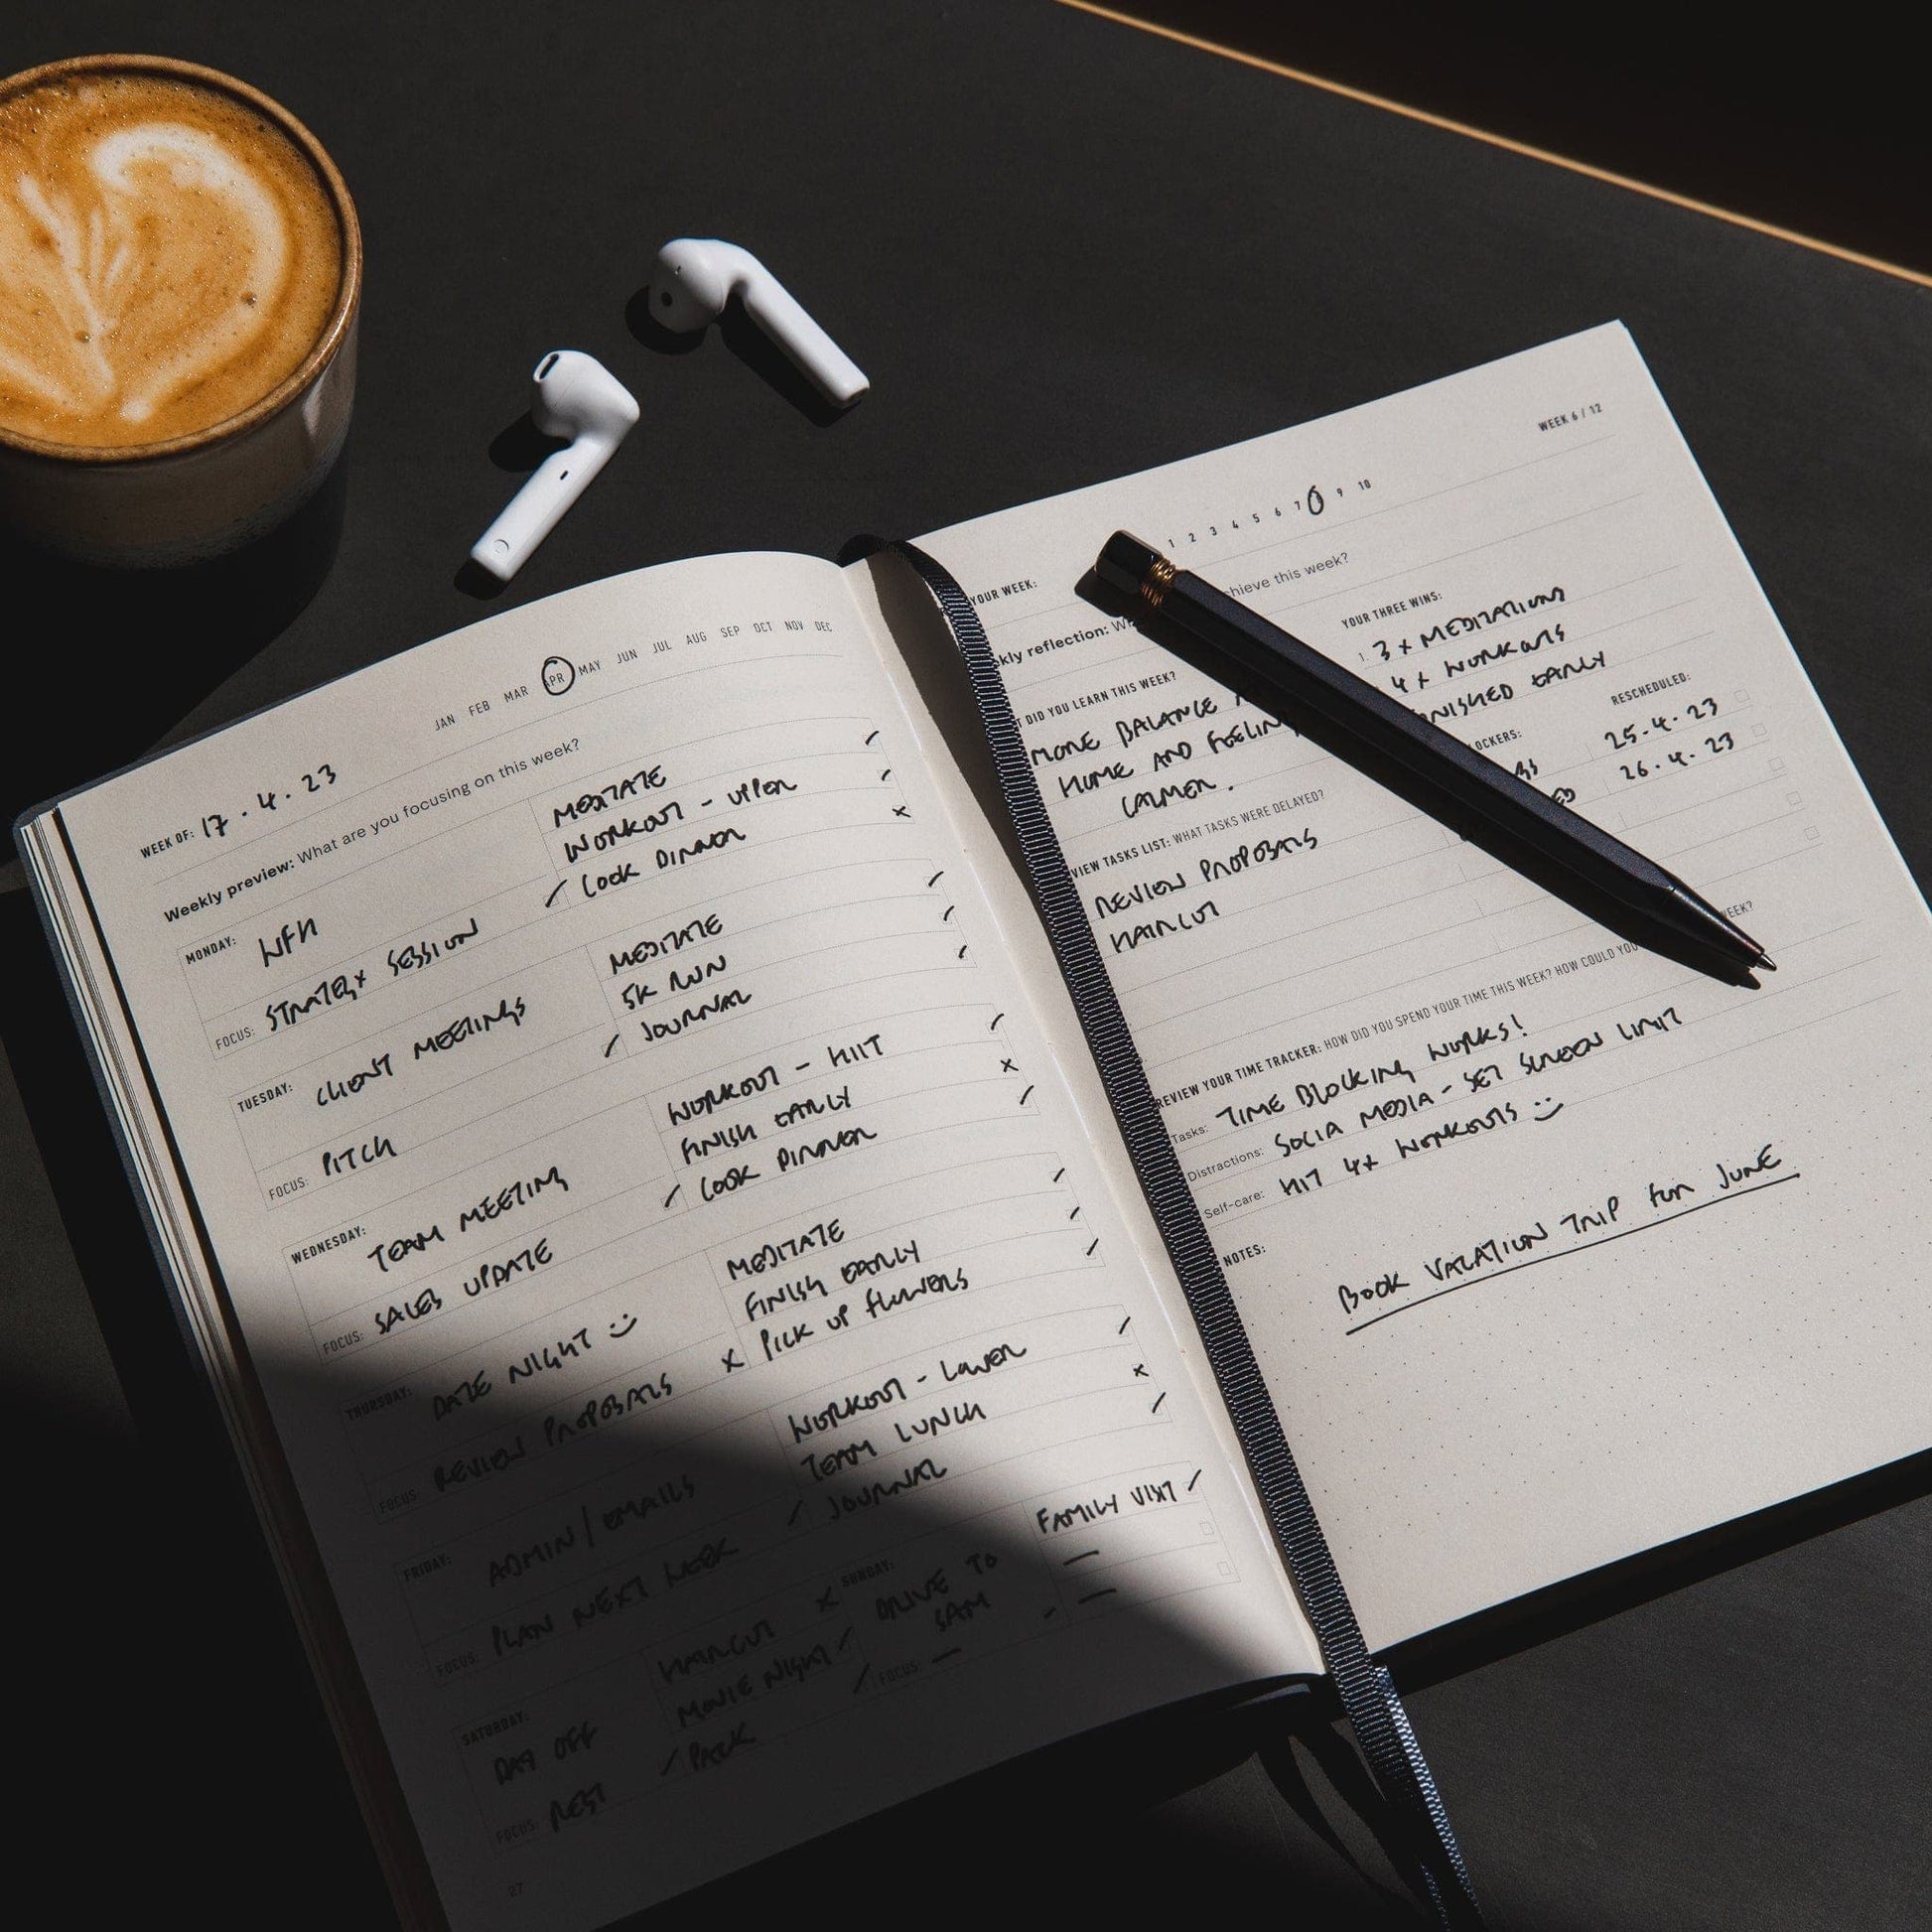 JAN FEB MAR APR MAY JUN JUL AUG SEP OCT NOV DEC
WEEK OF: 17.4.23
Weekly preview: What are you focusing on this week?
MONDAY: WFH
FOCUS: STRATEGY SESSION
MEDITATE
WORKOUT - UPPER
COOK DINNER
TUESDAY: CLIENT MEETINGS
FOCUS: PITCH
MEDITATE
5K RUN
JOURNAL
WEDNESDAY: TEAM MEETING
FOCUS: SALES UPDATE
WORKOUT - HIIT
FINISH EARLY
COOK DINNER
THURSDAY: DATE NIGHT
FOCUS: REVIEW PROPOSALS
MEDITATE
FINISH EARLY
PICK UP FLOWERS
FRIDAY: ADMIN / EMAILS
FOCUS: PLAN NEXT WEEK
WORKOUT - LOWER
TEAM LUNCH
JOURNAL
SATURDAY: DAY OFF
FOCUS: REST
HAIRCUT
MOVIE NIGHT
PACK
SUNDAY: DRIVE TO
SAM
FOCUS: —
FAMILY VISIT
—
—
27
WEEK 6 / 12
YOUR WEEK: 1 2 3 4 5 6 7 9 10
kly reflection: chieve this week?
DID YOU LEARN THIS WEEK?
MORE BALANCE
HOME AND FEELIN
CALMER.
YOUR THREE WINS:
1. 3 x MEDITATIONS
4 x WORKOUTS
NISHED EARLY
VIEW TASKS LIST: WHAT TASKS WERE DELAYED?
REVIEW PROPOSALS
HAIRCUT
LOCKERS:
RESCHEDULED:
25.4.23
26.4.23
REVIEW YOUR TIME TRACKER: HOW DID YOU SPEND YOUR TIME THIS WEEK? HOW COULD YOU WEEK?
Tasks: TIME BLOCKING WORKS!
Distractions: SOCIA MEDIA - SET SCREEN LIMIT
Self-care: HIT 4x WORKOUTS
NOTES:
BOOK VACATION TRIP FOR JUNE